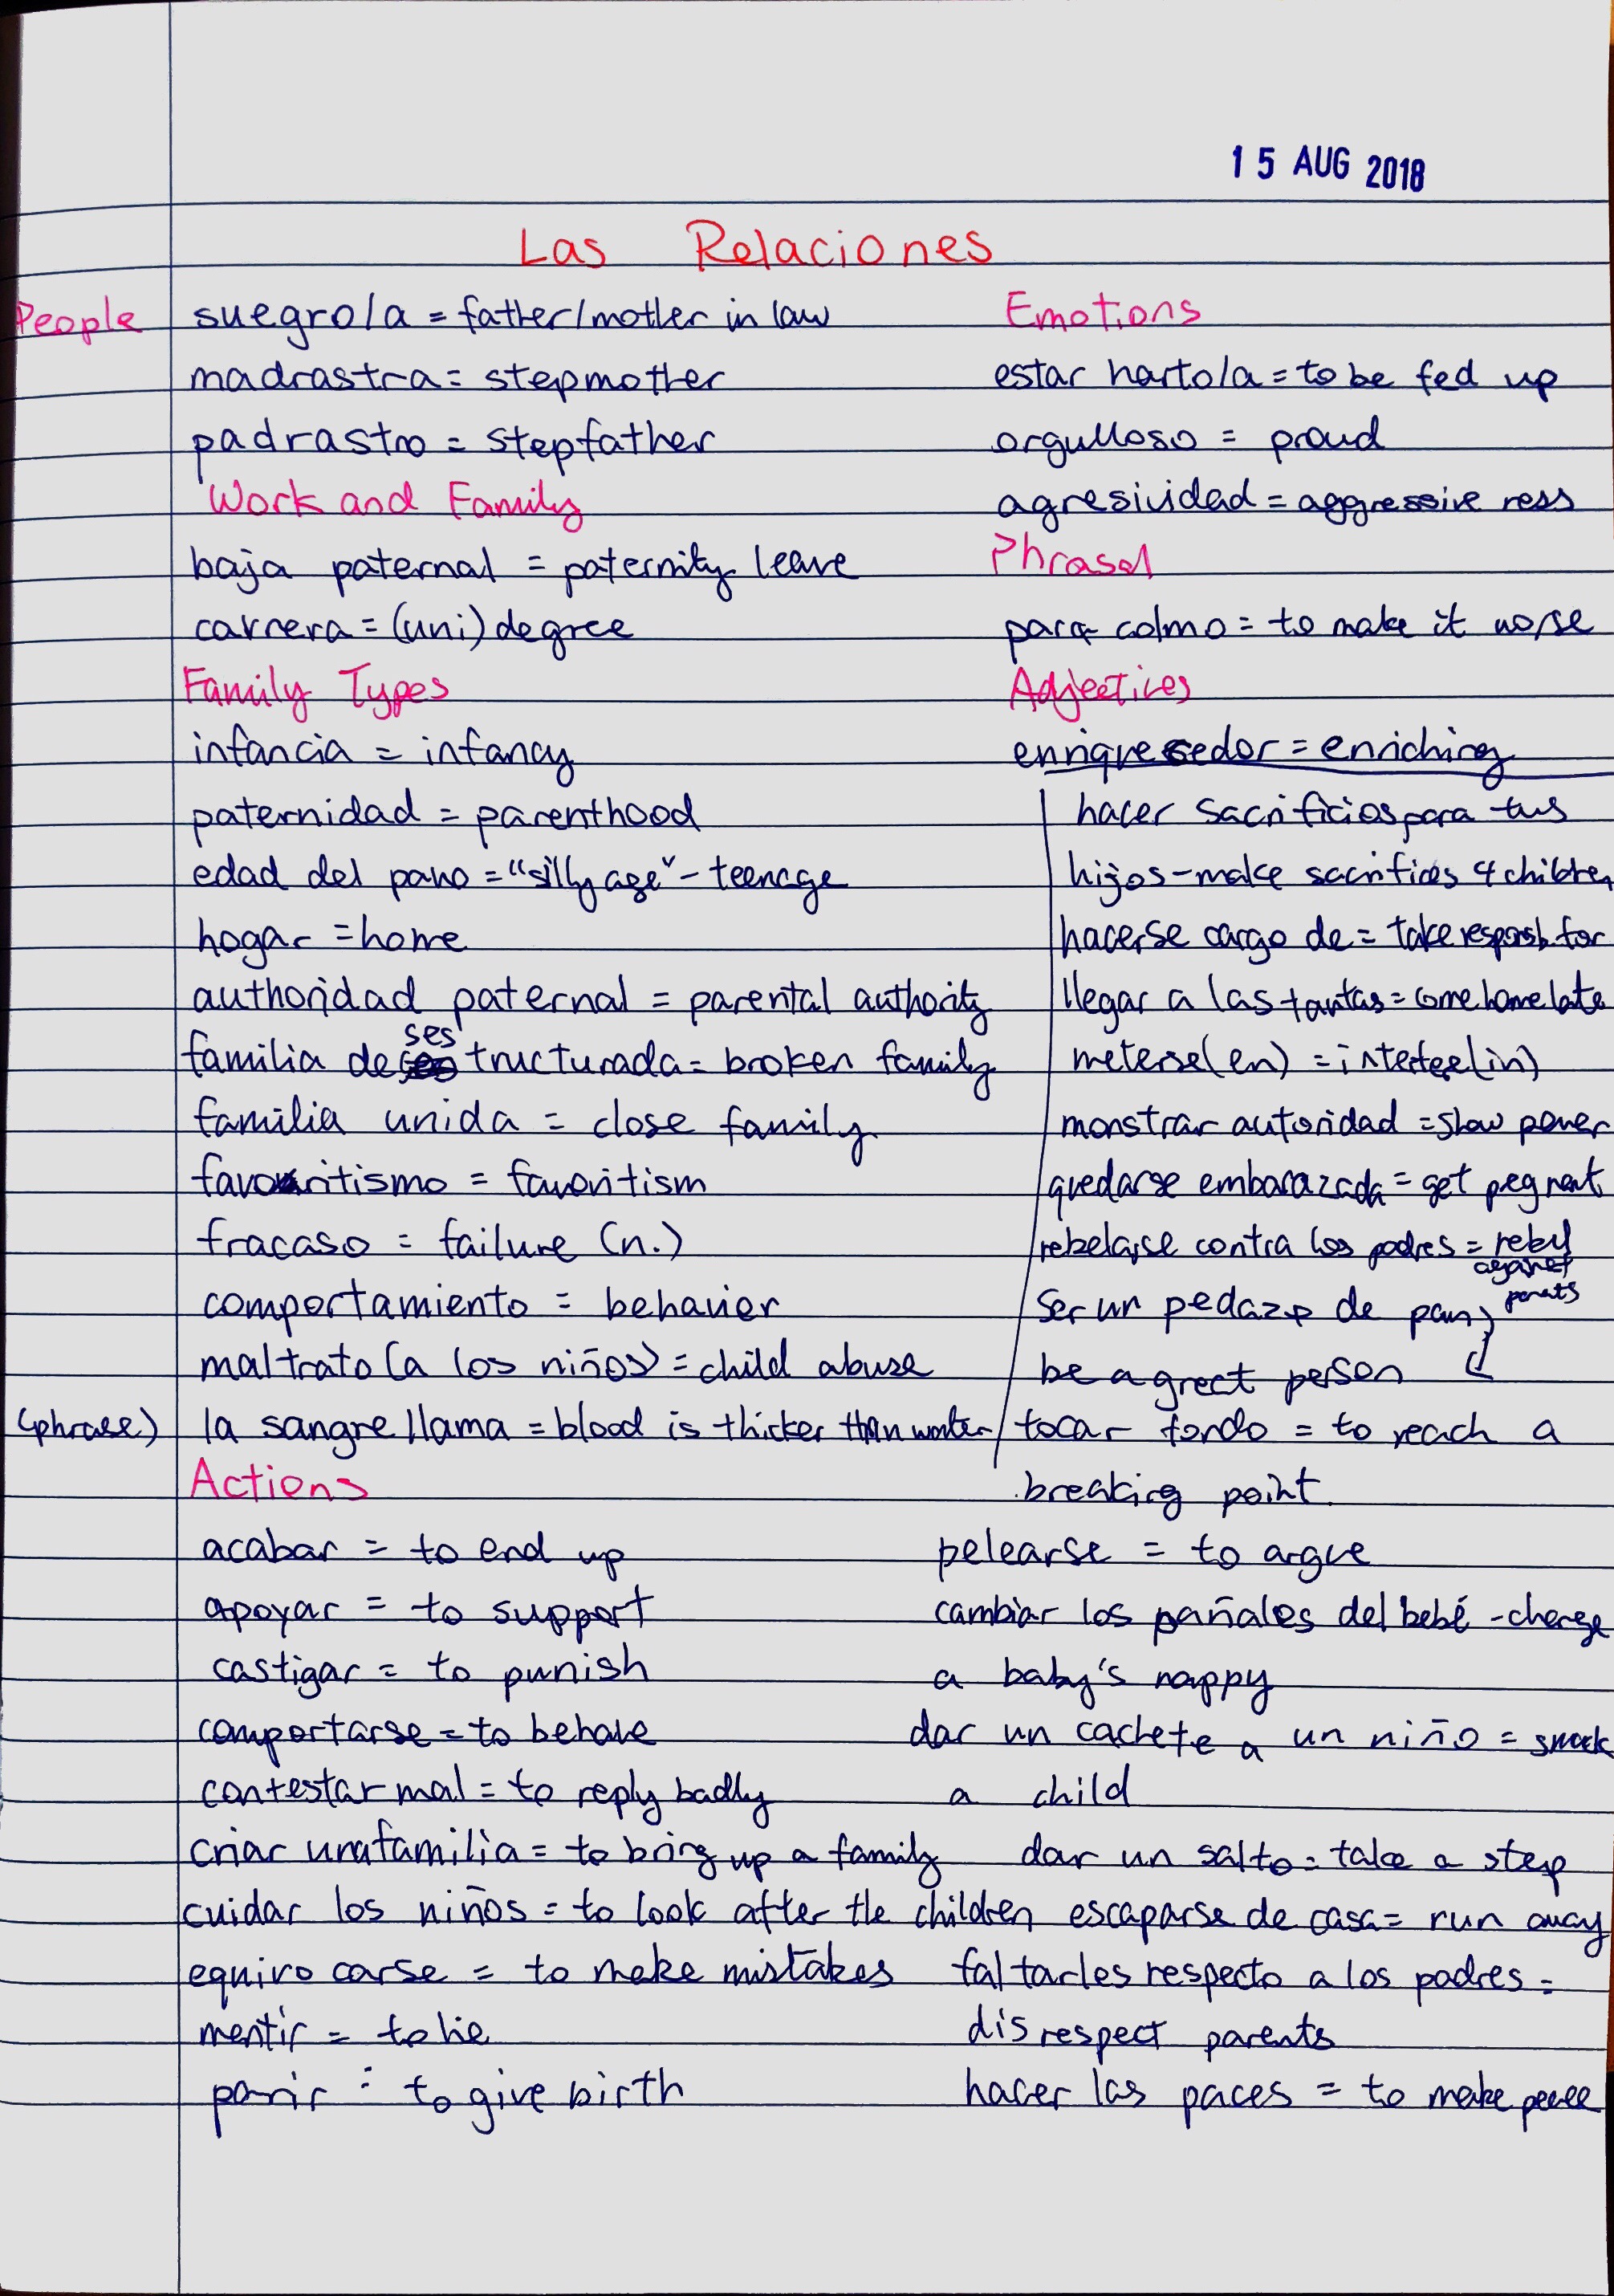 15 AUG 2018
Las Relaciones
People
suegro/a = father/mother in law
madrastra = stepmother
padrastro = stepfather
Work and Family
baja paternal = paternity leave
carrera = (uni) degree
Family Types
infancia = infancy
paternidad = parenthood
edad del pavo = "silly age" - teenage
hogar = home
authoridad paternal = parental authority
familia desestructurada = broken family
familia unida = close family
favoritismo = favoritism
fracaso = failure (n.)
comportamiento = behavier
maltrato (a los niños) = child abuse
(phrase) la sangre llama = blood is thicker than water
Actions
acabar = to end up
apoyar = to support
castigar = to punish
comportarse = to behave
contestar mal = to reply badly
criar una familia = to bring up a family
cuidar los niños = to look after the children
equivocarse = to make mistakes
mentir = to lie
parir = to give birth
Emotions
estar harto/a = to be fed up
orgulloso = proud
agresividad = aggressiveness
Phrases
para colmo = to make it worse
Adjectives
enriquecedor = enriching
hacer sacrificios para tus
hijos - make sacrifices 4 children
hacerse cargo de = take responsb. for
llegar a las tantas = come home late
meterse (en) = interfee (in)
monstrar autoridad = show power
quedarse embarazada = get pegnant
rebelarse contra los padres = rebel
against
parents
ser un pedazo de pan
be a great person
tocar fondo = to reach a
breaking point
pelearse = to argue
cambiar los pañales del bebé - change
a baby's nappy
dar un cachete a un niño = smack
a child
dar un salto = take a step
escaparse de casa = run away
faltarles respecto a los padres =
disrespect parents
hacer las paces = to make peace